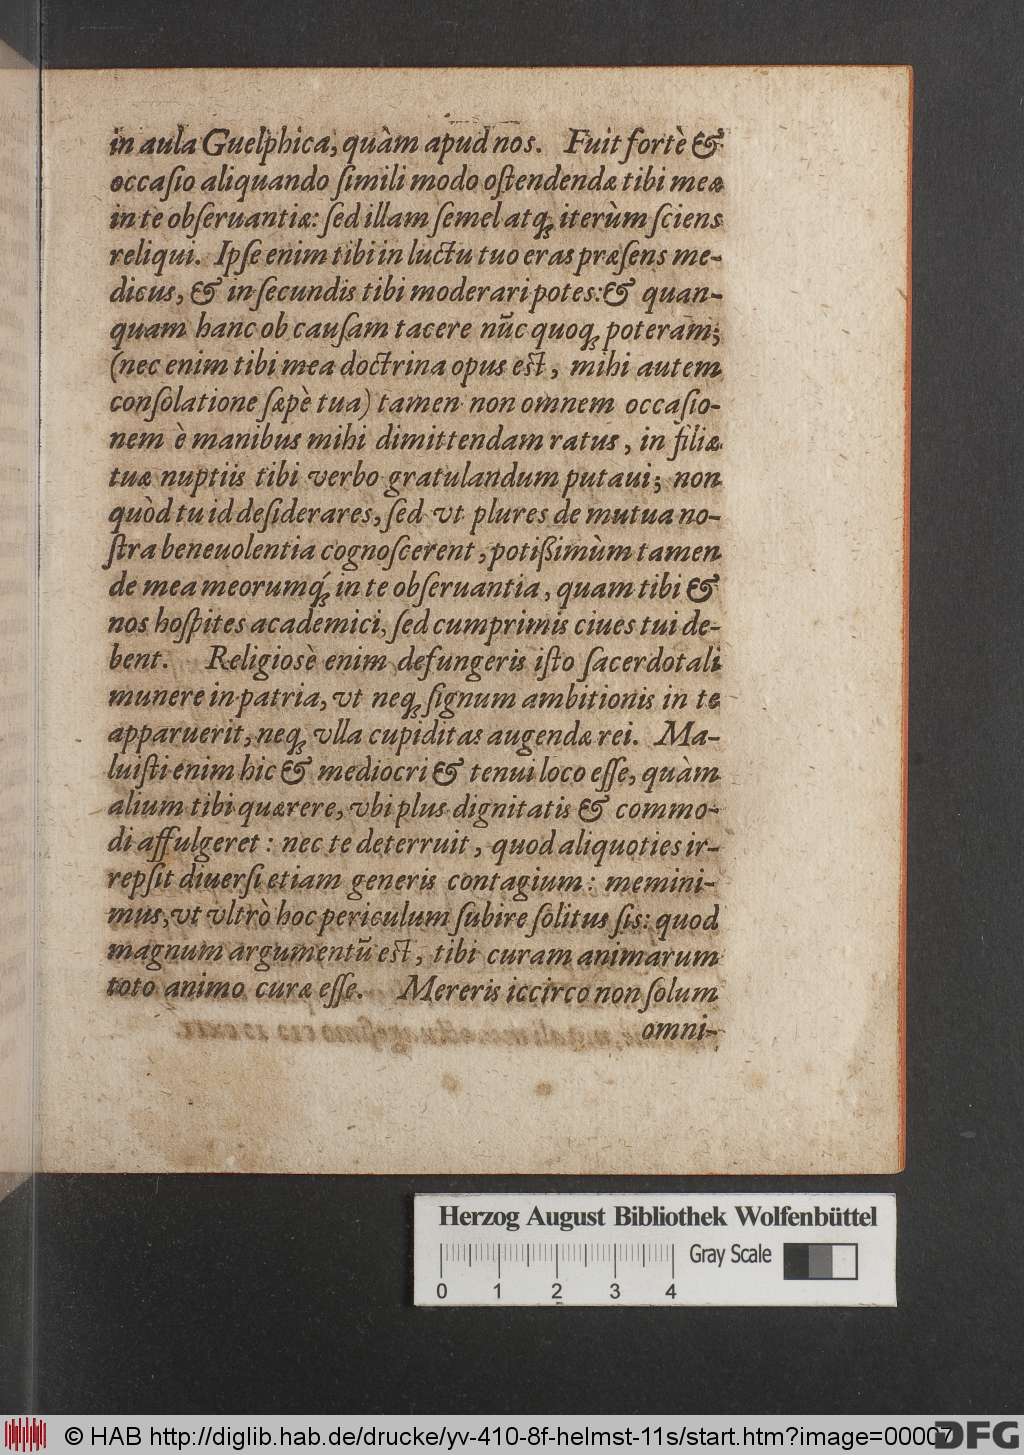 in aula Guelphica, quàm apud nos. Fuit fortè &
occaſio aliquando ſimili modo oſtendendæ tibi meæ
in te obſeruantiæ: ſed illam ſemel atq́; iterùm ſciens
reliqui. Ipſe enim tibi in luctu tuo eras præſens me-
dicus, & in ſecundis tibi moderari potes: & quan-
quam hanc ob cauſam tacere nũc quoq; poteram;
(nec enim tibi mea doctrina opus eſt, mihi autem
conſolatione ſæpè tua) tamen non omnem occaſio-
nem è manibus mihi dimittendam ratus, in filiæ
tuæ nuptiis tibi verbo gratulandum putaui; non
quòd tu id deſiderares, ſed vt plures de mutua no-
ſtra beneuolentia cognoſcerent, potißimùm tamen
de mea meorumq́; in te obſeruantia, quam tibi &
nos hoſpites academici, ſed cumprimis ciues tui de-
bent. Religiosè enim defungeris iſto ſacerdotali
munere in patria, vt neq; ſignum ambitionis in te
apparuerit, neq; vlla cupiditas augendæ rei. Ma-
luiſti enim hic & mediocri & tenui loco eſſe, quàm
alium tibi quærere, vbi plus dignitatis & commo-
di affulgeret: nec te deterruit, quod aliquoties ir-
repſit diuerſi etiam generis contagium: memini-
mus, vt vltrò hoc periculum ſubire ſolitus ſis: quod
magnum argumentũ eſt, tibi curam animarum
toto animo curæ eſſe. Mereris iccirco non ſolum
omni-
Herzog August Bibliothek Wolfenbüttel
Gray Scale
0 1 2 3 4
© HAB http://diglib.hab.de/drucke/yv-410-8f-helmst-11s/start.htm?image=00007
DFG